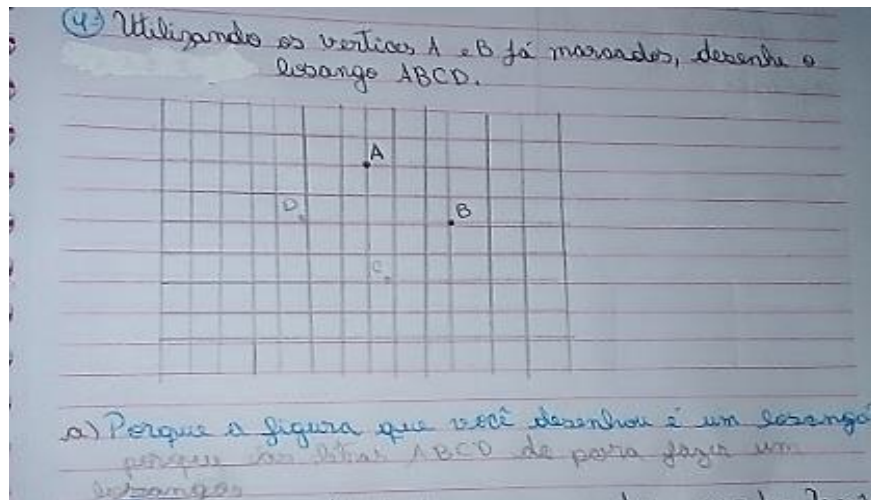 4) Utilizando os vértices A e B já marcados, desenhe o
losango ABCD.
A
D
B
C
a) Porque a figura que você desenhou é um losango
porque as letras ABCD da para fazer um
losangos